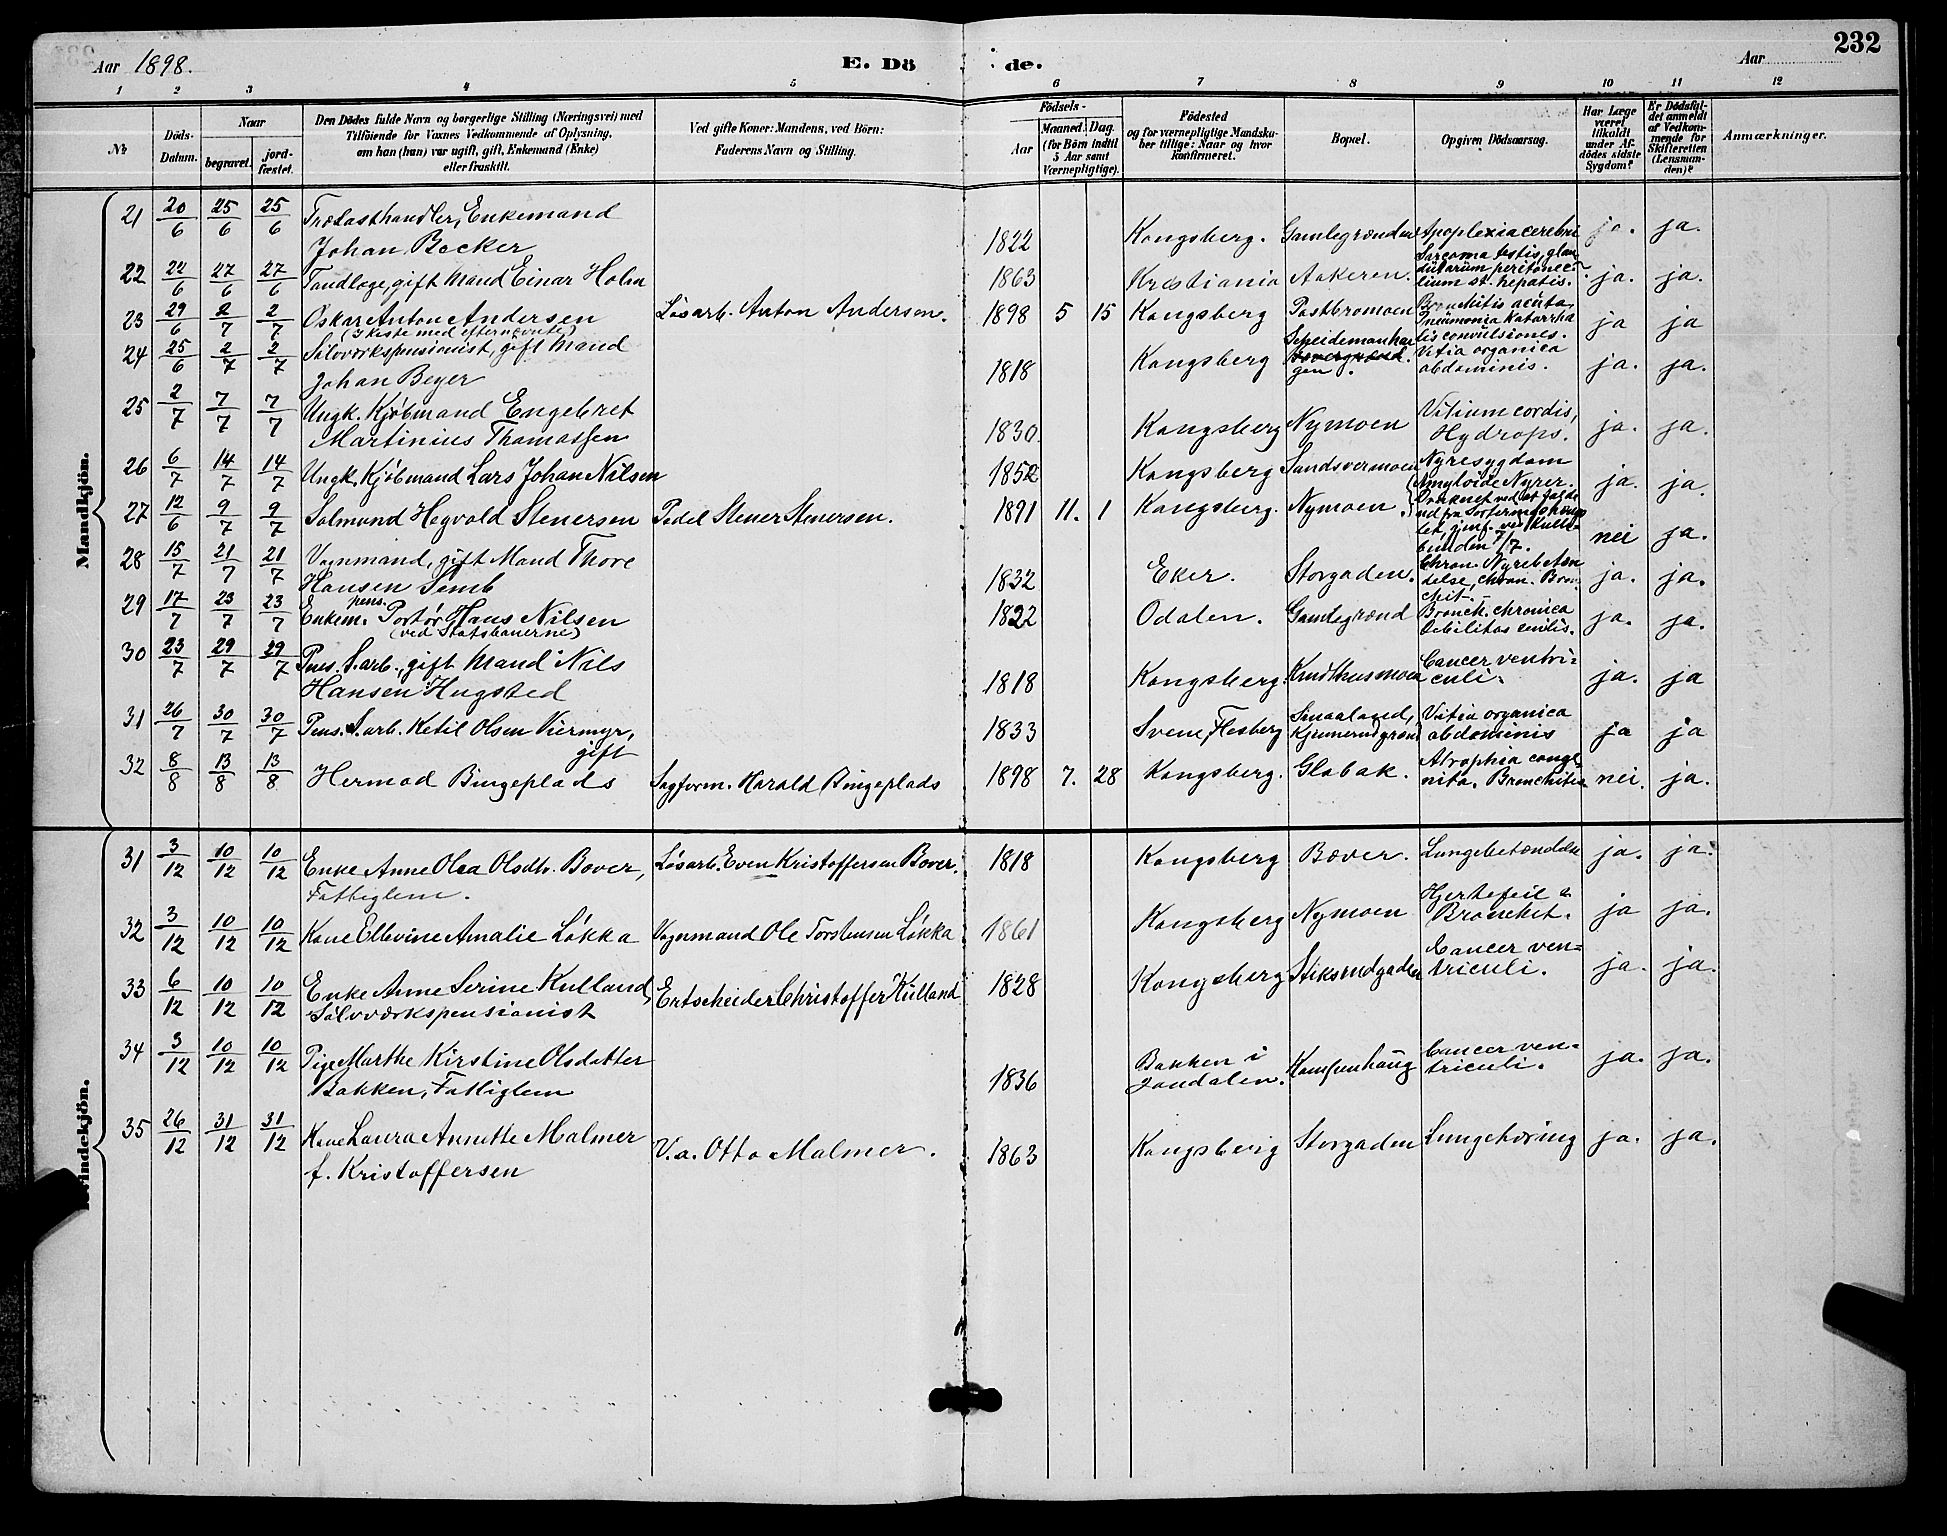 232
Aar 1898.
E. Dö
de.
Aar
1 2 3 4 5 6 7 8 9 10 11 12
No
Döds-Datum.
Naar
begravet.
jord-fæstet.
Den Dödes fulde Navn og borgerlige Stilling (Næringsvei) med
Tilföiende for Voxnes Vedkommende af Oplysning,
om han (hun) var ugift, gift, Enkemand (Enke)
eller fraskilt.
Ved gifte Koner: Mandens, ved Börn:
Faderens Navn og Stilling.
Födsels-
Aar
Maaned. Dag.
(for Börn indtil
5 Aar samt
Værnepligtige).
Födested
og for værnepligtige Mandska-
ber tillige: Naar og hvor
konfirmeret.
Bopæl.
Opgiven Dödsaarsag.
Har Læge
været
tilkaldt
under Af-
dödes sidste
Sygdom?
Er Dödsfal-
det anmeldt
af Vedkom-
mende for
Skifteretten
(Lensman-
den)?
Anmærkninger.
Mandkjön.
21 20/6 25/6 25/6 Trælasthandler, Enkemand
Johan Becker 1822 Kongsberg. Gamlegrænden Apoplexia cerebri ja. ja.
22 22/6 27/6 27/6 Tandlæge, gift Mand Einar Holm 1863 Kristiania Aakeren. Sarcoma testis, glan
dularum peritonei
lium st. hepatis. ja. ja.
23 29/6 2/7 2/7 Oskar Anton Andersen Løsarb. Anton Andersen. 1898 5 15 Kongsberg Pastbromoen Bronchitis acuta,
Pneumonia Katarrha
lis convulsiones. ja ja
(I kiste med efternævnte)
24 25/6 2/7 2/7 Sølvværkspensionist, gift Mand
Johan Beyer 1818 Kongsberg Scheidemanhau
gen. Vitia organica
abdominis. ja. ja.
25 2/7 7/7 7/7 Ungk. Kjøbmand Engebret
Martinius Thomassen 1830. Kongsberg Nymoen Vitium cordis,
Hydrops. ja. ja.
26 6/7 14/7 14/7 Ungk. Kjøbmand Lars Johan Nilsen 1852 Kongsberg Sandsværmoen Nyresygdom
(Amyloide Nyrer. ja. ja.
27 12/6 9/7 9/7 Salmund Hegvald Stenersen Pedel Stener Stenersen. 1891 11. 1 Kongsberg. Nymoen. Druknet ved at falde
ud fra
ved
bunden 7/7. nei ja.
28 15/7 21/7 21/7 Vognmand, gift Mand Thore
Hansen Semb 1832 Eker. Storgaden. Chron. Nyrebetæn
delse, chron. Bron
chit. ja. ja.
29 17/7 23/7 23/7 Enkem. pens. Portør Hans Nilsen
(ved Statsbanerne) 1822 Odalen. Gamlegrænd Bronch. chronica
Debilitas senilis. ja. ja.
30 23/7 29/7 29/7 Pens. S. arb., gift Mand Nils
Hansen Hugsted 1818 Kongsberg. Krudthusmoen Cancer ventri-
culi. ja. ja
31 26/7 30/7 30/7 Pens. S. arb. Ketil Olsen Kiermyr,
gift 1833 Svene, Flesberg Smaaland,
Kjennerudgrænd Vitia organica
abdominis ja ja
32 8/8 13/8 13/8 Hermod Bingeplads Sagform. Harald Bingeplads 1898 7. 28 Kongsberg. Glabak. Atrophia conge
nita. Bronchitis nei. ja.
Kvindekjön.
31 3/12 10/12 10/12 Enke Anne Olea Olsdtr. Bæver,
Fattiglem. Løsarb. Even Kristoffersen Bæver. 1818 Kongsberg Bæver. Lungebetændelse ja. ja.
32 3/12 10/12 10/12 Kone Ellevine Amalie Løkka Vognmand Ole Torstensen Løkka 1861 Kongsberg Nymoen Hjertefeil &
Bronchit. ja ja.
33 6/12 10/12 10/12 Enke Anne Serine Kulland,
Sølvværkspensionist Ertscheider Christoffer Kulland 1828 Kongsberg Stiksrudgaden Cancer ven-
triculi. ja. ja.
34 3/12 10/12 10/12 Pige Marthe Kirstine Olsdatter
Bakken, Fattiglem 1836 Bakken i
Jondalen. Kampenhaug Cancer ven-
triculi. ja. ja.
35 26/12 31/12 31/12 Kone Laura Annette Malmer
f. Kristoffersen V.a. Otto Malmer. 1863 Kongsberg Storgaden Lungetæring ja. ja.